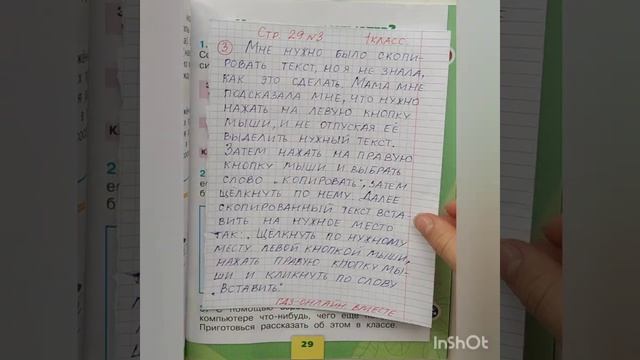 Стр. 29 №3 1 класс.
③ Мне нужно было скопи-
ровать текст, но я не знала,
как это сделать. Мама мне
подсказала мне, что нужно
нажать на левую кнопку
мыши, и не отпуская её
выделить нужный текст.
Затем нажать на правую
кнопку мыши и выбрать
слово „копировать", затем
щелкнуть по нему. Далее
скопированный текст вста-
вить на нужное место
так:. Щелкнуть по нужному
месту левой кнопкой мыши,
нажать правую кнопку мы-
ши и кликнуть по слову
„вставить".
ГДЗ-онлайн вместе
компьютере что-нибудь, чего ещё
Приготовься рассказать об этом в классе.
29
InShOt